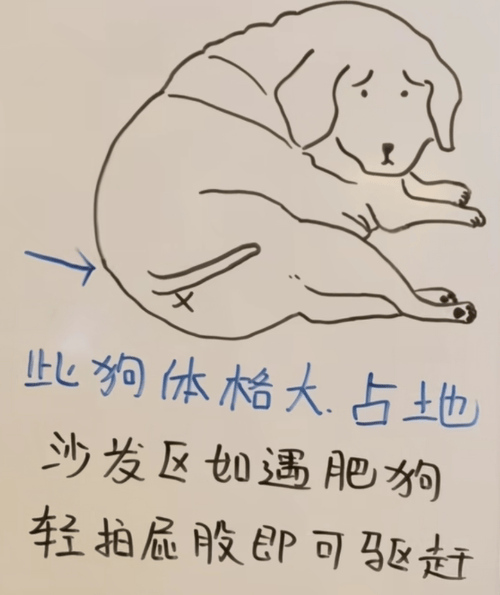 此狗体格大.占地
沙发区如遇肥狗
轻拍屁股即可驱赶